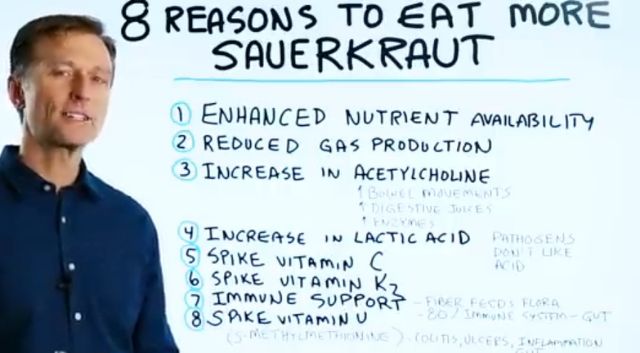 8 REASONS TO EAT MORE
SAUERKRAUT
1 ENHANCED NUTRIENT AVAILABILITY
2 REDUCED GAS PRODUCTION
3 INCREASE IN ACETYLCHOLINE
↑ BOWEL MOVEMENTS
↑ DIGESTIVE JUICES
↑ ENZYMES
4 INCREASE IN LACTIC ACID PATHOGENS
DON'T LIKE
ACID
5 SPIKE VITAMIN C
6 SPIKE VITAMIN K2
7 IMMUNE SUPPORT - FIBER FEEDS FLORA
- 80/ IMMUNE SYSTEM - GUT
8 SPIKE VITAMIN U
(S-METHYLMETHIONINE) - COLITIS, ULCERS, INFLAMMATION
GUT